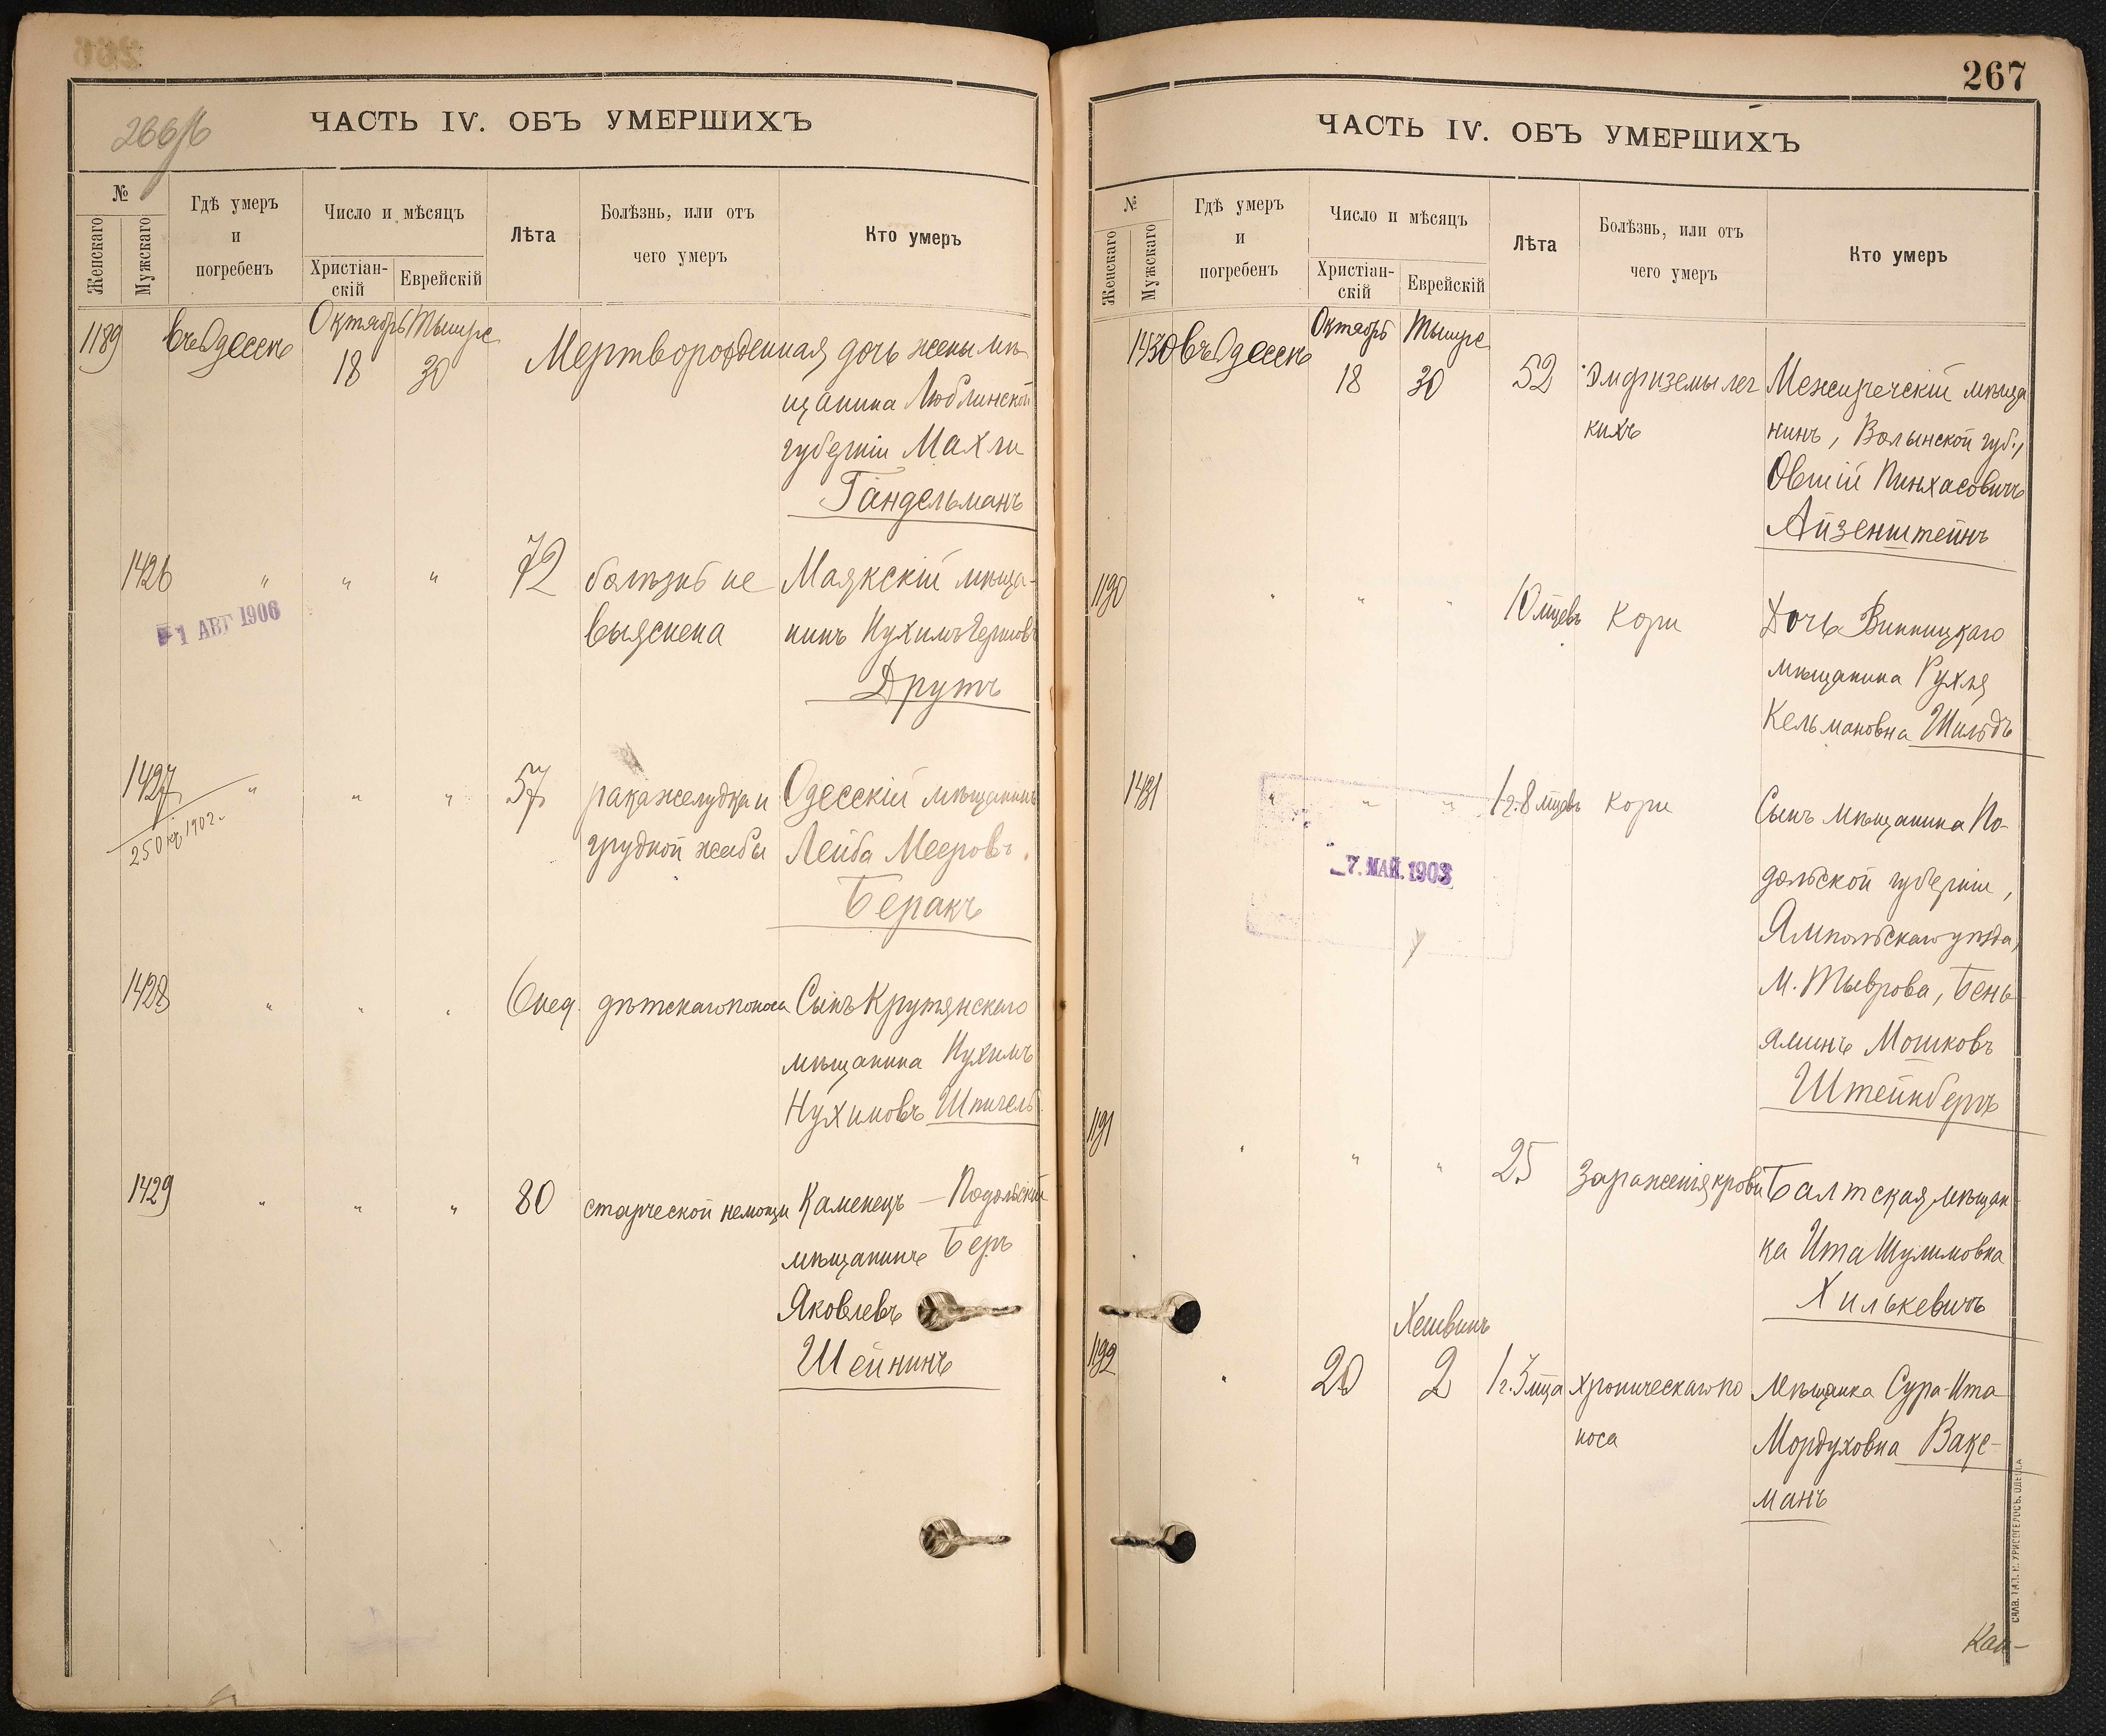 266/б
ЧАСТЬ IV. ОБЪ УМЕРШИХЪ
№
Женскаго
Мужскаго
Гдѣ умеръ
и
погребенъ
Число и мѣсяцъ
Христіан-
скій
Еврейскій
Лѣта
Болѣзнь, или отъ
чего умеръ
Кто умеръ
1189 въ Одессѣ Октябрь 18 Тышре 30 Мертворожденная дочь жены мѣ
щанина Люблинской
губерніи Махли
Гандельманъ
1426 " " " 72 болѣзнь не Маякскій мѣща-
выяснена нинъ Нухимъ Гершовъ
Друтъ
1 АВГ 1906
1427 " " " 57 рака желудка и Одесскій мѣщанинъ
250 1902.
грудной жабы Лейба Мееровъ
Беракъ
1428 " " " 6 нед. дѣтскаго поноса Сынъ Крутянскаго
мѣщанина Нухимъ
Нухимовъ Шпигель
1429 " " " 80 старческой немощи Каменецъ-Подольскій
мѣщанинъ Беръ
Яковлевъ
Шейнинъ
267
ЧАСТЬ IV. ОБЪ УМЕРШИХЪ
№
Женскаго
Мужскаго
Гдѣ умеръ
и
погребенъ
Число и мѣсяцъ
Христіан-
скій
Еврейскій
Лѣта
Болѣзнь, или отъ
чего умеръ
Кто умеръ
1430 въ Одессѣ Октябрь 18 Тышре 30 52 Эмфиземы лег Межиречскій мѣща
кихъ нинъ, Волынской губ.,
Овшій Пинхасовичъ
Айзенштейнъ
1190 " " " 10 мѣцевъ кори Дочь Винницкаго
мѣщанина Рухля
Кельмановна Шильдъ
1431 " " " 1 г. 8 мѣцевъ кори Сынъ мѣщанина По-
7. МАЙ. 1903
дольской губерніи,
Ямпольскаго уѣзда,
м. Тыврова, Бень-
яминъ Мошковъ
Штейнбергъ
1191 " " " 25 Зараженія крови Балтская мѣщан
ка Ита Шулимовна
Хилькевичъ
Хешвинъ
1192 " 20 2 1 г. 3 мѣца хроническаго по Мѣщанка Сура-Ита
носа Мордуховна Вакс-
манъ
Кан-